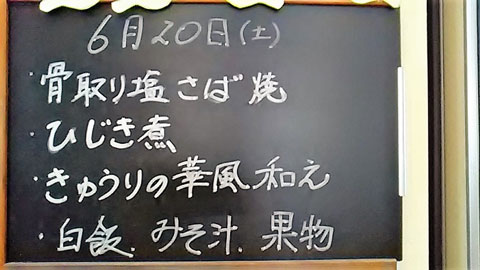 6月20日(土)
・骨取り塩さば焼
・ひじき煮
・きゅうりの華風和え
・白飯、みそ汁、果物